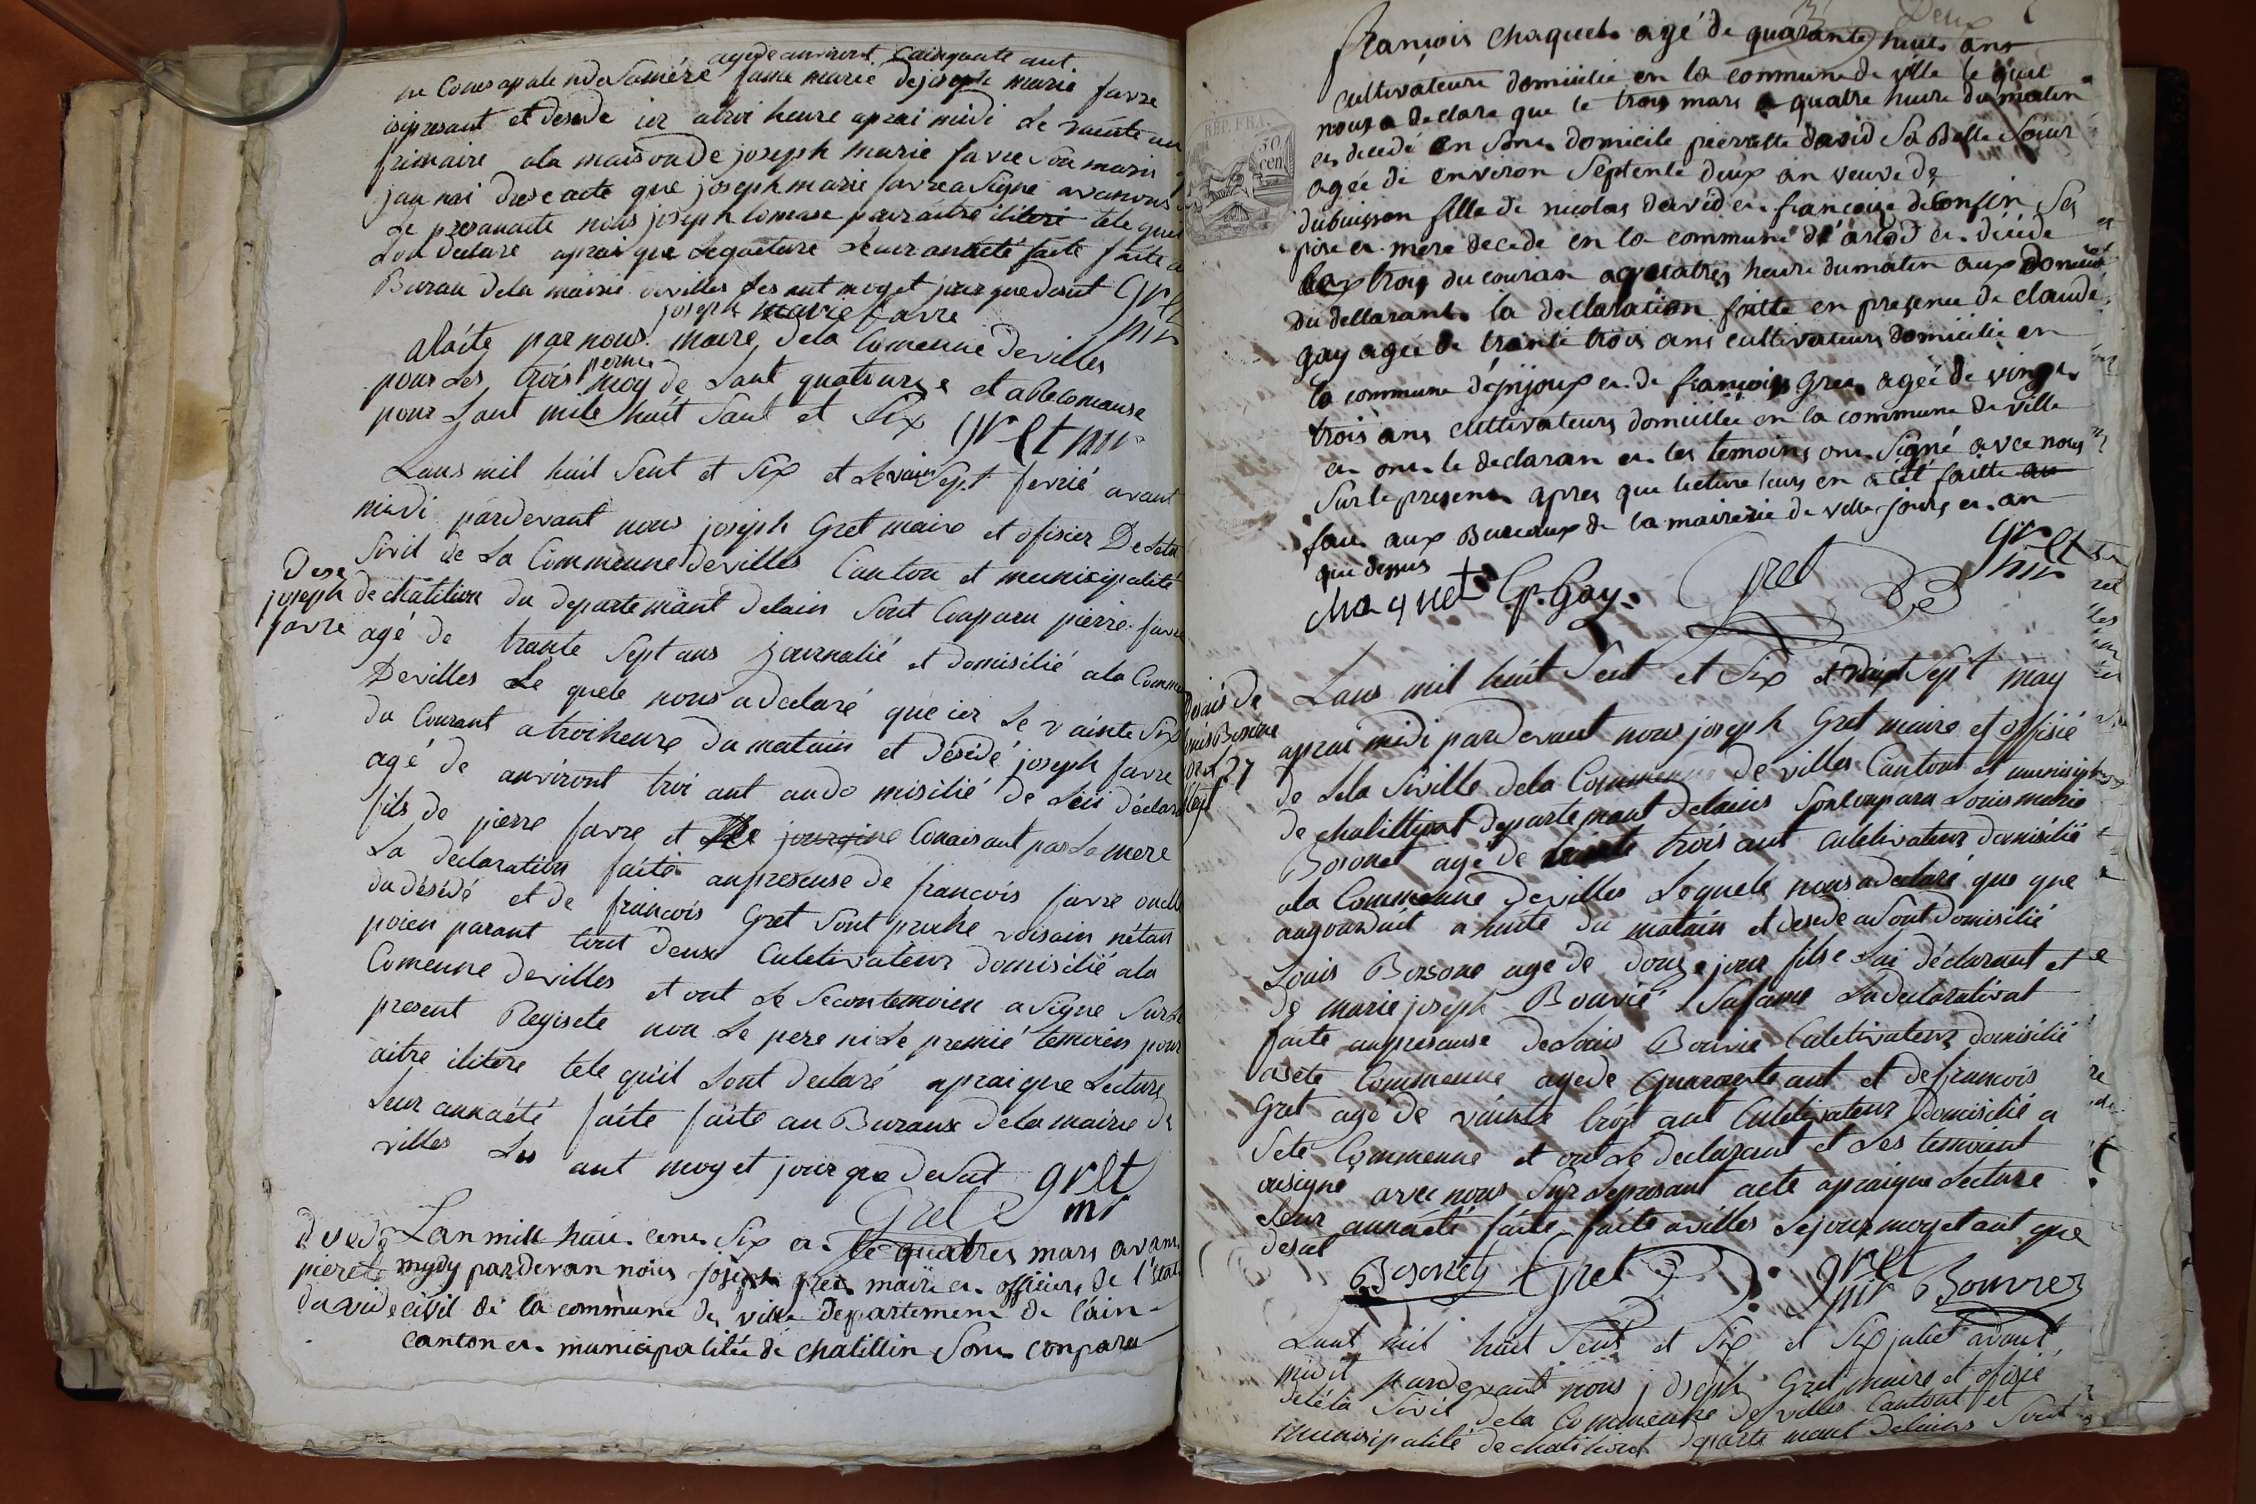 agé de anviront cainquate ant
ne Conus apale nde Samére fame marie de joseph marie favre
isi presant et deséde ier atroi heure aprai midi Le vainte un
frimaire ala maison de joseph marie favre Son marin
jau nai drese acte que joseph marie favre a Signe avec nous
Le presanacte nous joseph lomase pour aitre ilitere tele quil
Lon declare aprai que Legueture Leur anaeté faite faite au
Burau dela mairie de villes Les ant moy et jour que desut Gret
joseph marie favre mir
alaite par nous maire dela Comenne devilles
pour Les trois permié moy de Lant quatorze et able lomause
pour Lant mile huit Sant et Six gret mir
Lans mil huit Sent et Six et Le vain Sept ferrié avant
midi pardevant nous joseph Gret maire et ofisier De Leta
Sivil de La Commenne devilles Canton et municipalité
de chatilion du departemant delain Sont Conparu pierre favre
Dese
joseph
favre
agé de trante Sept ans journalié et domisilié ala Comme
Devilles Le quele nous a declaré que ier Le vainte Six
du Courant atroi heure du matain et désédé joseph favre
agé de anviront troi ant au do misilié de Lui déclara
fils de pierre favre et de Conaisant pas La mere
La declaration faite anpresense de francois favre oncle
du désédé et de francois Gret Sont proche voisain nétan
poien parant tout deux Culetivateur domisilié ala
Comenne devilles et ont Le Secon temoien a Signe Sur Le
present Regisete non Le pere ni Le premié temoien pour
aitre ilitere tele quil Lont declaré aprai que Lecture
Leur annaété faite faite au Buraux dela mairie de
villes Les ant moy et jour que desut gret
Gret mr
Lan mille huit cent Six et le quatres mars avant
décé de
piere
david
mydy pardevan nous joseph gret maire et officier de l'état
civil de la commune de ville departement de l'ain
canton et municipalitée de chatillin Sont conparu
françois chaquet agé de quarante huit ans
cultivateur domicilié en la commune de ville le quel
nous a declare que le trois mars a quatre heure du matin
et decedé en Son domicile pierrette david Sa Belle Sœur
agée de environ Septente deux an veuve de
dubuisson fille de nicolas david et françoise deconfin Ses
pere et mere decede en la commune d'arlod et décéde
le trois du couran a quatres heure du matin aux domicile
du dellarant la dellaration faitte en presence de claude
gay agee de trante trois ans cultivateur domicilie en
la commune d'injoux et de françois gret agée de vingt
trois ans cultivateurs domicilée en la commune de ville
et ont le declaran et les temoins ont Signé avec nous
Sur le present apres que lecture leurs en a été faitte
fait aux Bureaux de la mairerie de ville jours et an
que dessus gret
mir
REP. FRA.
50
cen
chaquet C.p. Gay Gret
Lans mil huit Sent et Six et vaint Sept may
aprai midi pardevant nous joseph Gret maire et offisié
de Leta Siville dela Commenne de villes Canton et munisip
de chatilliont departemant delains Sont conparu Louis marie
Bosonet agé de trois ant Culetivateur domisilié
ala Commenne devilles Lequele nous a declaré que que
aujourduit a huite du matain et desede a Sont domisilié
Louis Bosone age de douze jour fils e Lui déclarant et
de marie joseph Bouvié Safame La declarationt
faite anpresanse deLouis Bouvié Culetivateur domisilié
asete Commenne agede quarante ant et de francois
Gret agé de vainte trois ant Culetivateur domisilié a
Sete Commenne et ont Le declarant et Les temoient
onsigné avec nous Sur Le presant acte aprai que Lecture
Leur annaeté faite faite avilles Le jour moy et ant que
desut
Bosonet Gret gret
mir Bouvier
Lant mil huit Sent et Six et Six juliet avant
midit pardevant nous joseph Gret maire et ofisié
deléta Sivil dela Commenne de villes Cantont et
municipalité de chatiliont departe mant delains Sont